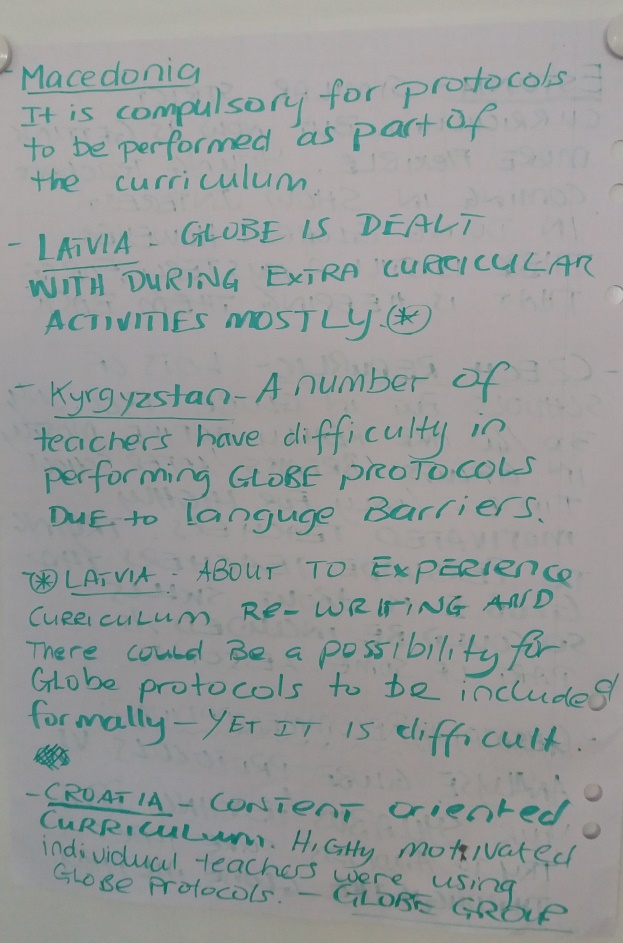 - Macedonia
It is compulsory for protocols
to be performed as part of
the curriculum.
- LATVIA - GLOBE IS DEALT
WITH DURING EXTRA CURRICULAR
ACTIVITIES MOSTLY. (*)
- Kyrgyzstan - A number of
teachers have difficulty in
performing GLOBE PROTOCOLS
DUE to languge Barriers.
(*) LATVIA - ABOUT TO EXPERIENCE
CURRICULUM RE-WRITING AND
There could Be a possibility for
Globe protocols to be included
formally - YET IT IS difficult.
- CROATIA - CONTENT oriented
CURRICULUM. HIGHly motivated
individual teachers were using
GLOBE Protocols. - GLOBE GROUP